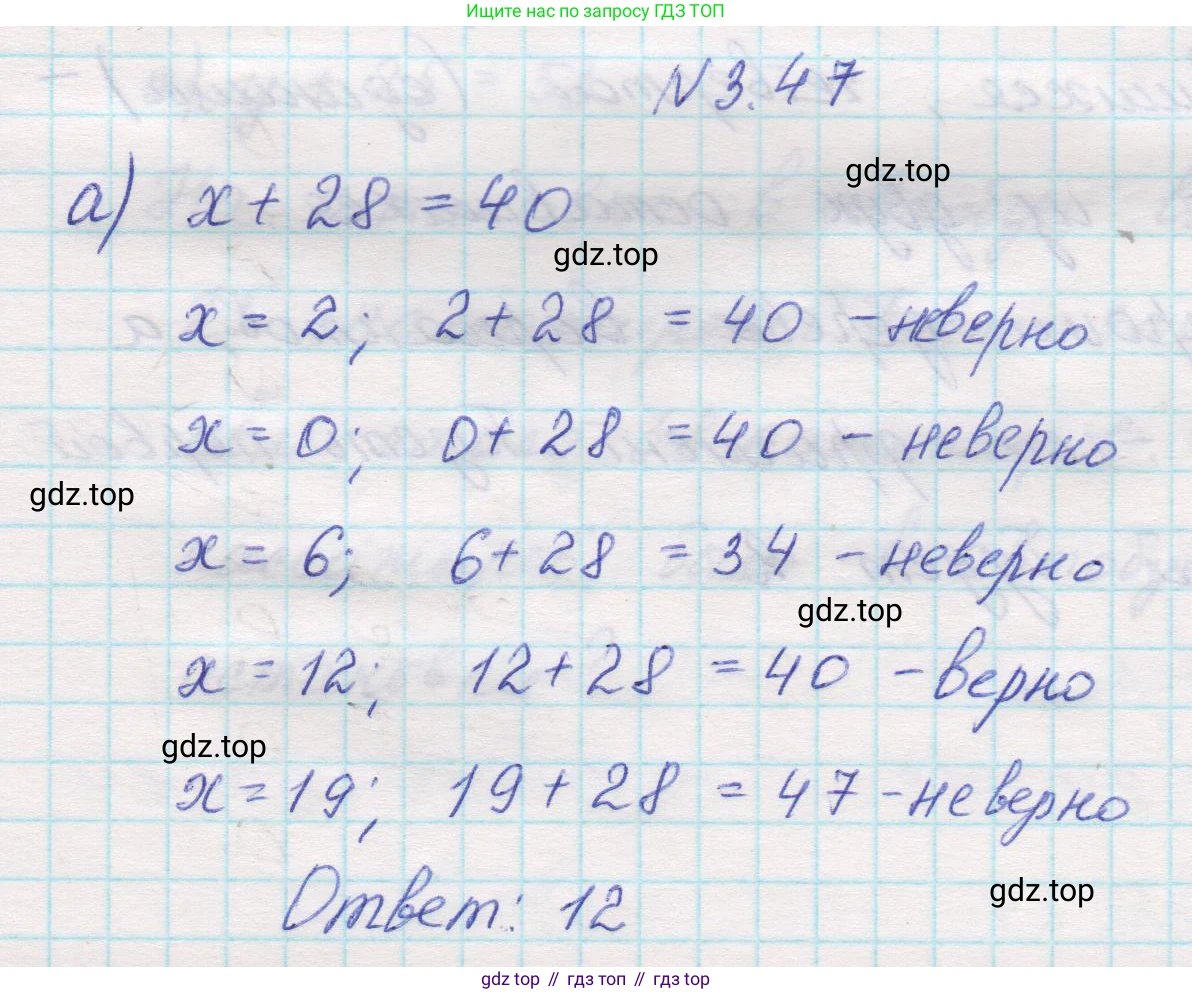 Ищите нас по запросу ГДЗ ТОП
N 3.47
gdz.top
а) x + 28 = 40
gdz.top
x = 2; 2 + 28 = 40 - неверно
x = 0; 0 + 28 = 40 - неверно
gdz.top
x = 6; 6 + 28 = 34 - неверно
gdz.top
x = 12; 12 + 28 = 40 - верно
gdz.top
x = 19; 19 + 28 = 47 - неверно
gdz.top
Ответ: 12
gdz top // гдз топ // гдз top